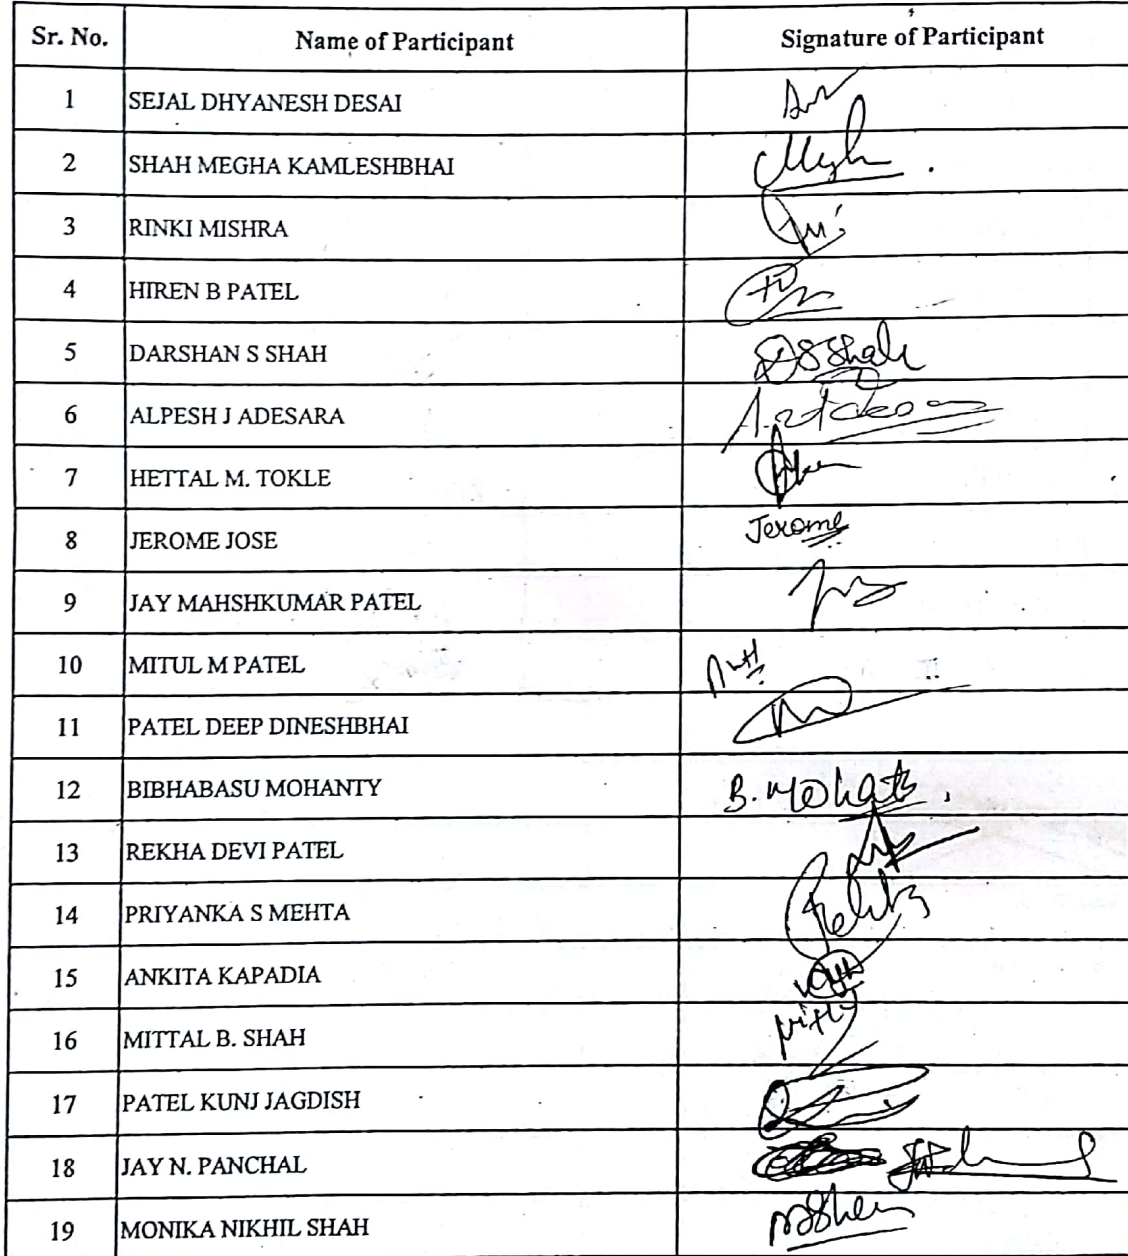 Sr. No. Name of Participant Signature of Participant
1 SEJAL DHYANESH DESAI
2 SHAH MEGHA KAMLESHBHAI
3 RINKI MISHRA
4 HIREN B PATEL
5 DARSHAN S SHAH DSShah
6 ALPESH J ADESARA
7 HETTAL M. TOKLE
8 JEROME JOSE Jerome
9 JAY MAHSHKUMAR PATEL
10 MITUL M PATEL
11 PATEL DEEP DINESHBHAI
12 BIBHABASU MOHANTY
13 REKHA DEVI PATEL
14 PRIYANKA S MEHTA
15 ANKITA KAPADIA
16 MITTAL B. SHAH
17 PATEL KUNJ JAGDISH
18 JAY N. PANCHAL
19 MONIKA NIKHIL SHAH